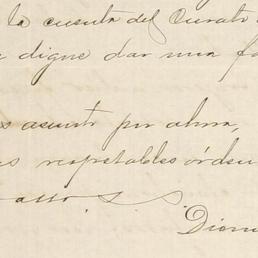 la cuenta del Curato
digne dar una fa
asunto por ahora,
respetables órden
atto S. S.
Dioni